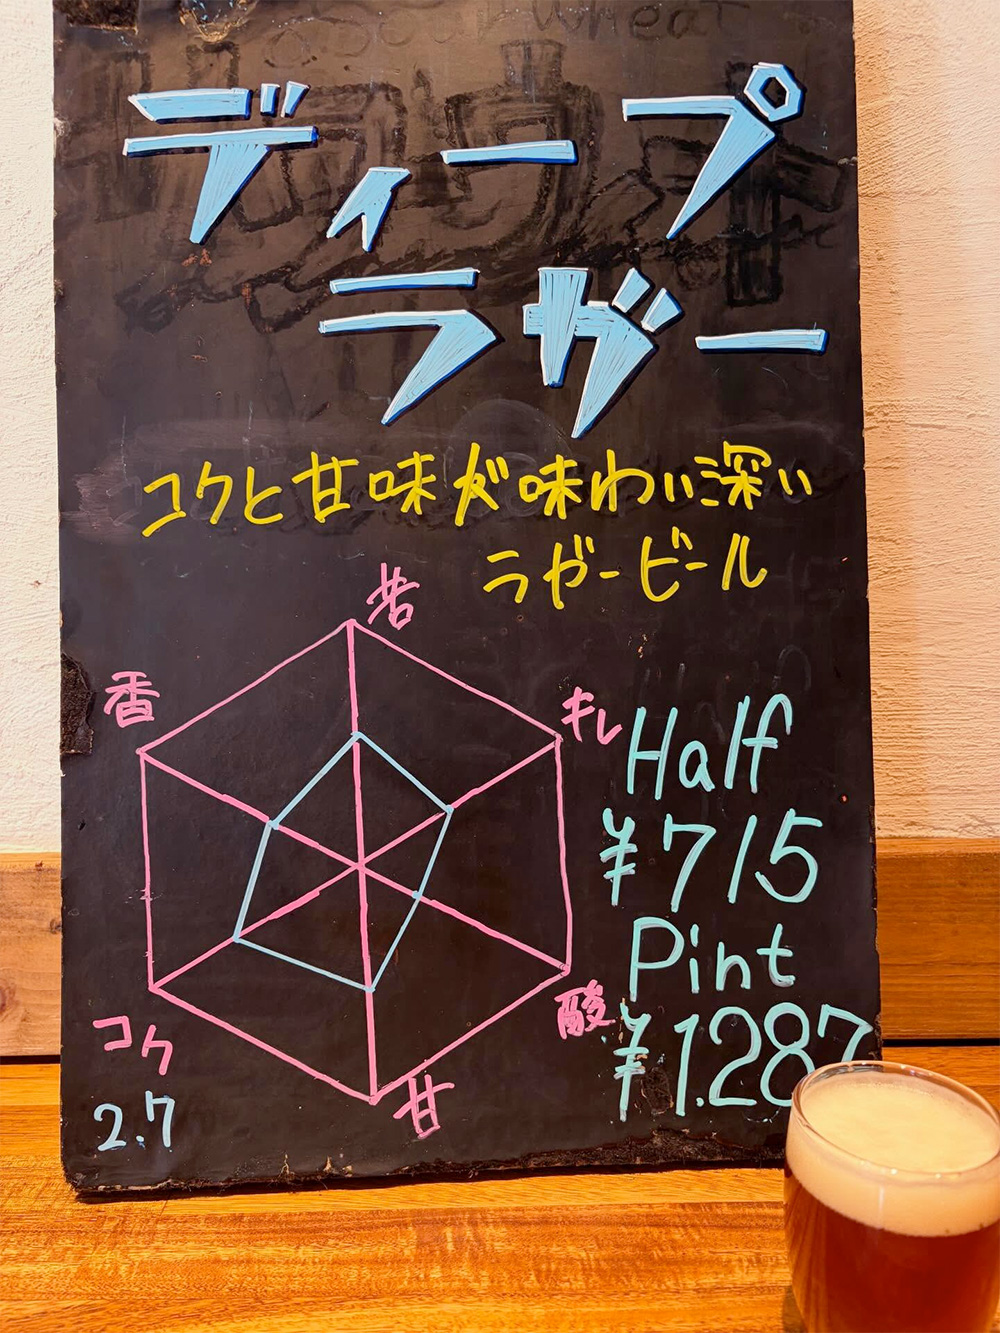 Wheat
ディープ
ラガー
コクと甘味が味わい深い
ラガービール
苦
香
キレ
コク
酸
甘
2.7
Half
¥715
Pint
¥1.287